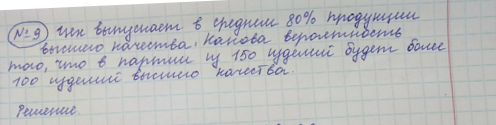 №9 Цех выпускает в среднем 80% продукции
высшего качества. Какова вероятность
того, что в партии из 150 изделий будет более
100 изделий высшего качества.
Решение.